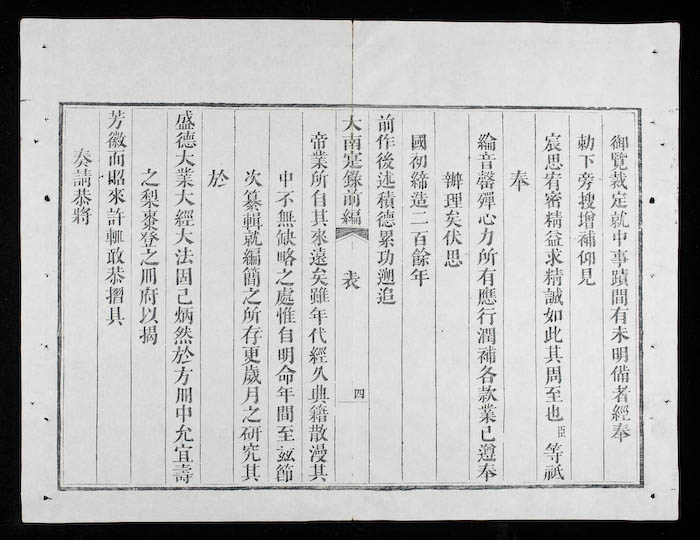 御覽裁定就中事蹟間有未明備者經奉
勅下旁搜增補仰見
宸思宥密精益求精誠如此其周至也臣等祗
奉
綸音罄殫心力所有應行潤補各款業已遵奉
辨理矣伏思
國初締造二百餘年
前作後述積德累功遡追
大南寔錄前編 表 四
帝業所自其來遠矣雖年代經久典籍散漫其
中不無缺略之處惟自明命年間至玆節
次纂輯就編簡之所存更歲月之研究其
於
盛德大業大經大法固已炳然於方冊中允宜壽
之梨棗登之冊府以揭
芳徽而昭來許輒敢恭摺具
奏請恭將